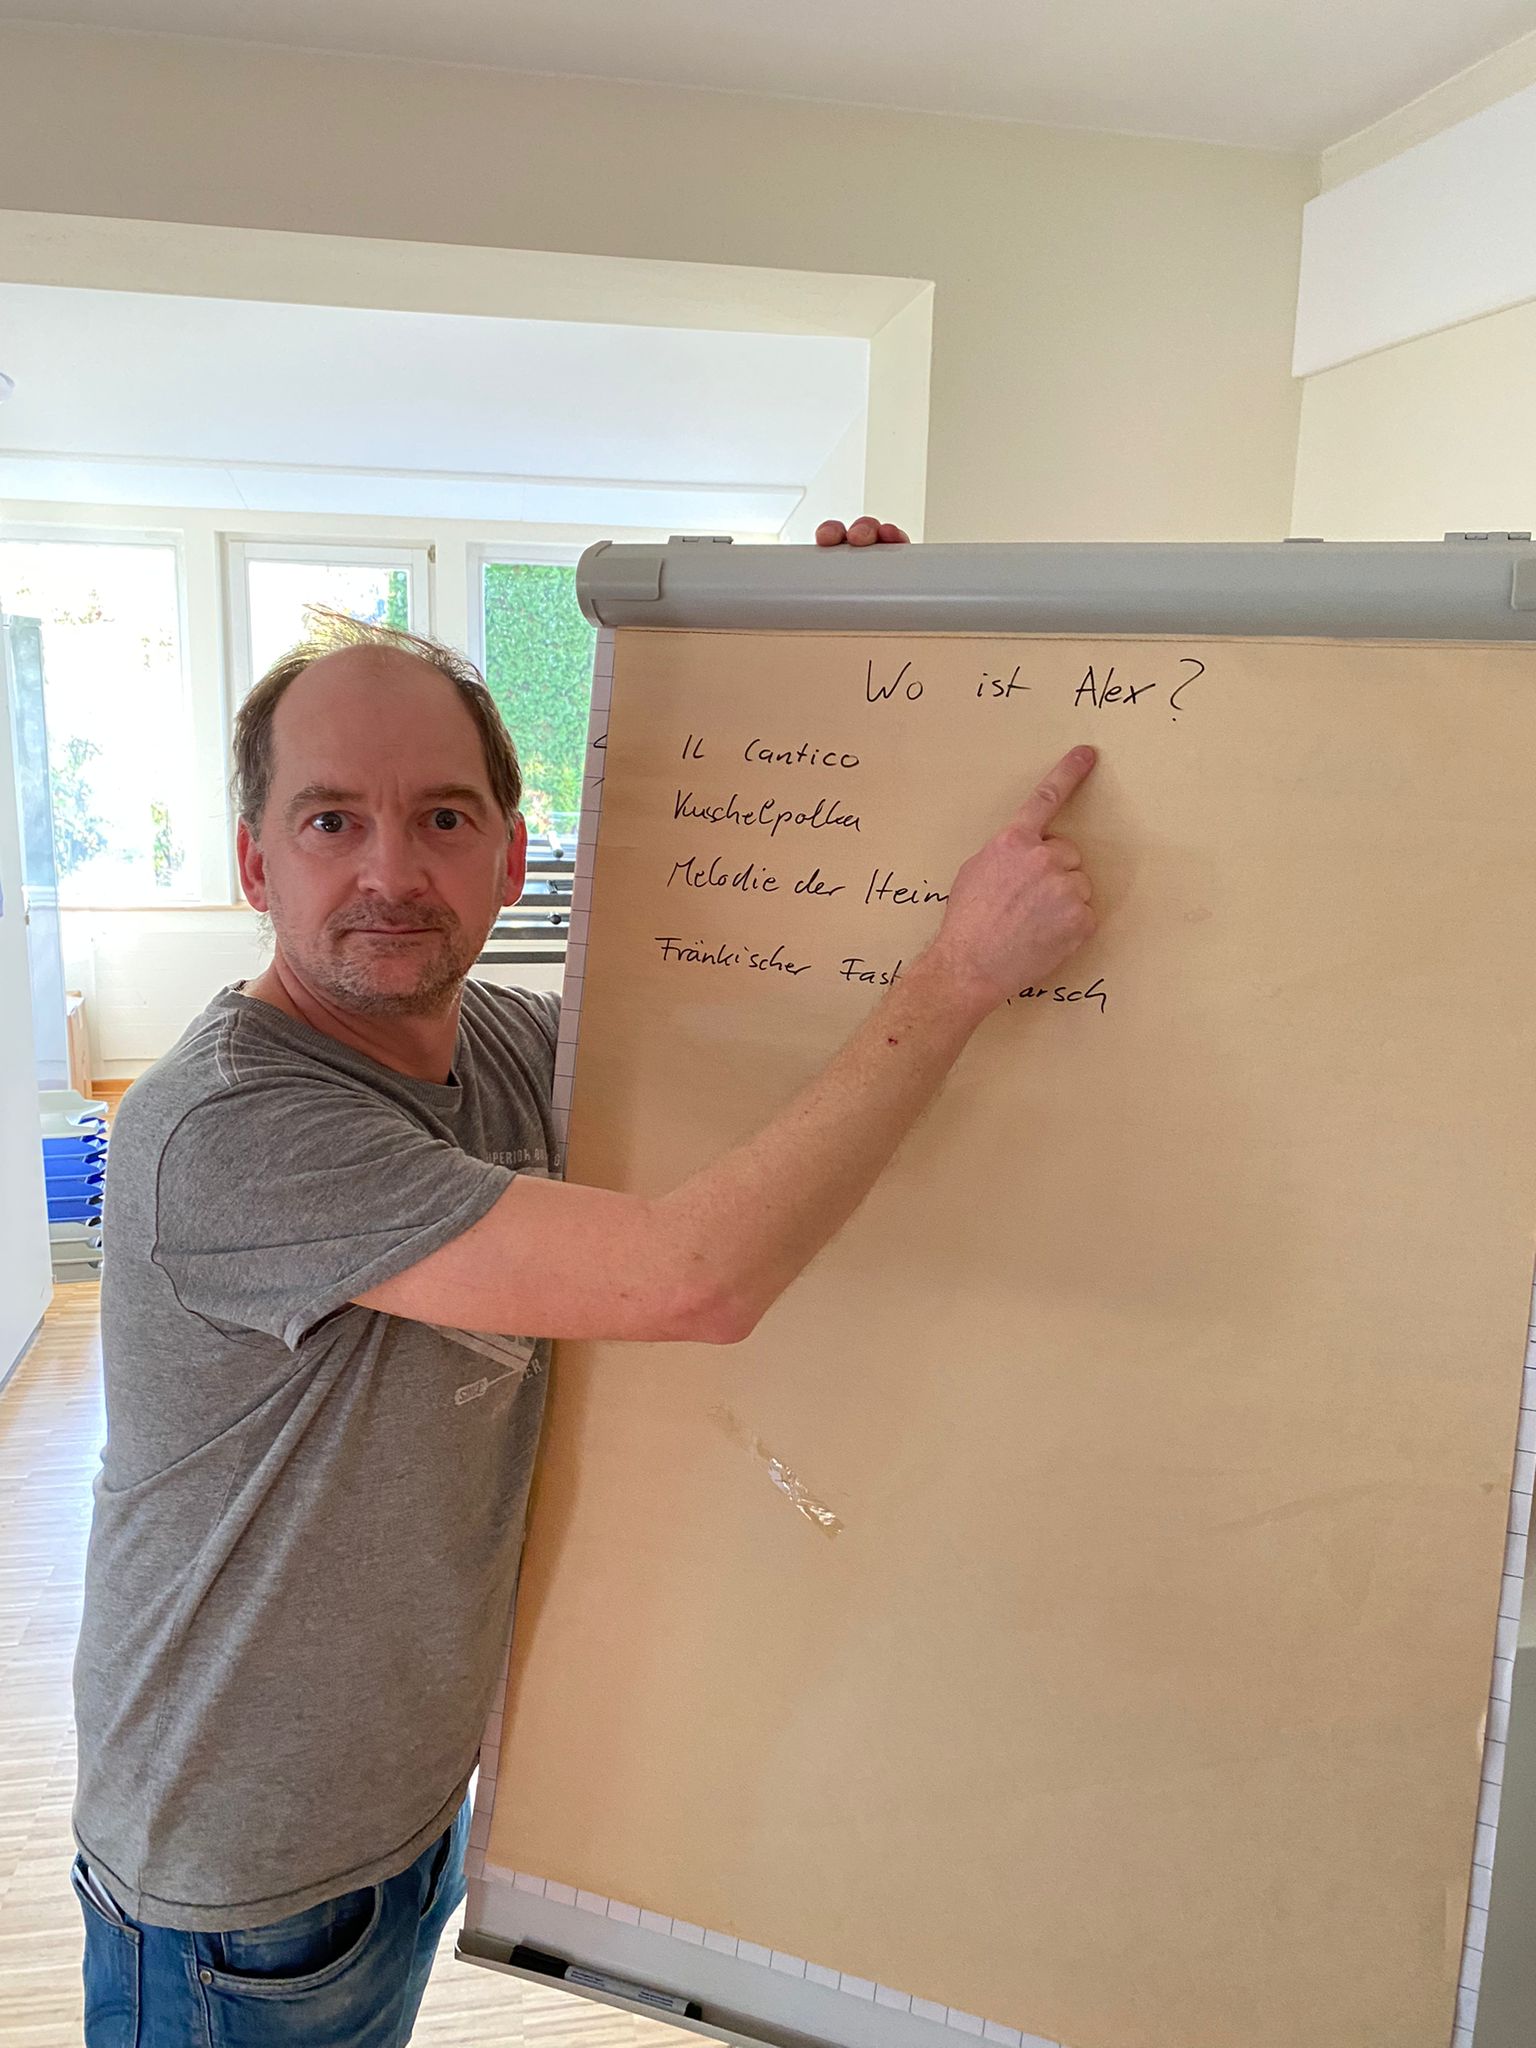 Wo ist Alex?
IL Cantico
Kuschelpolka
Melodie der Heim
Fränkischer Fast arsch